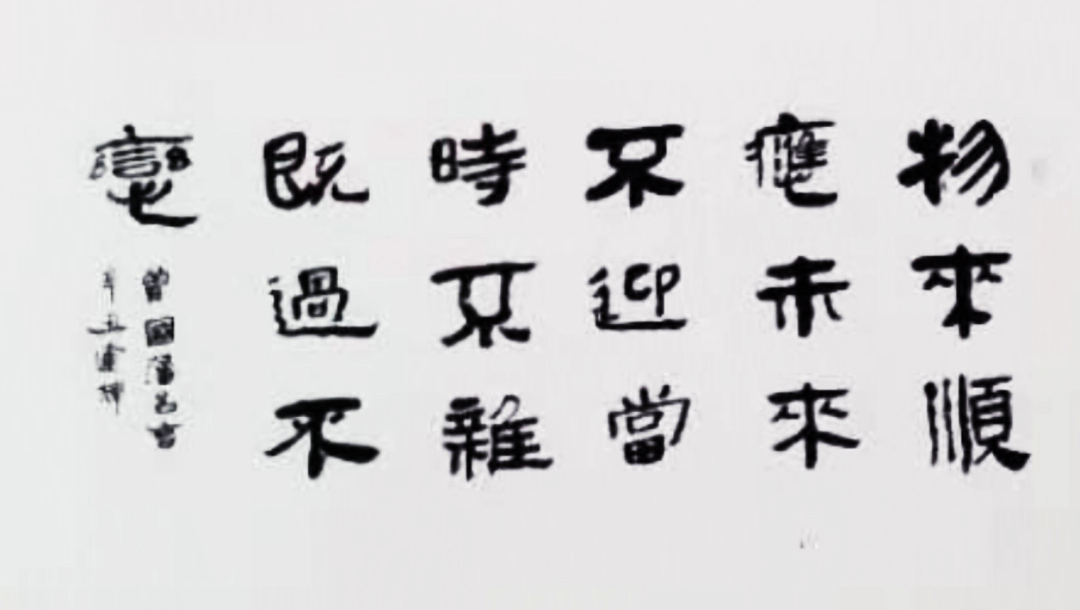 物來順
應未來
不迎當
時不雜
既過不
戀
曾國藩名言
辛丑建輝